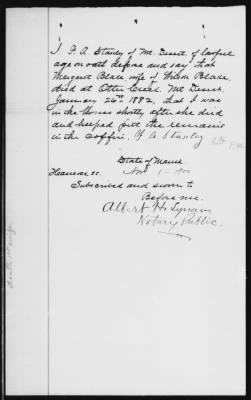 I F. A. Stanley of Mt. Desert. of lawful
age on oath depose and say that
Margaret Blake wife of Wilson Blake,
died at Otter Creek. Mt Desert,
January 26th 1882, that I was
in the house shortly after she died
and helped put the remains
in the coffin. F. A. Stanley
State of Maine
Hancock ss. Nov 1 - 1900
Subscribed and sworn to
Before me
Albert H. Lynam
Notary Public.